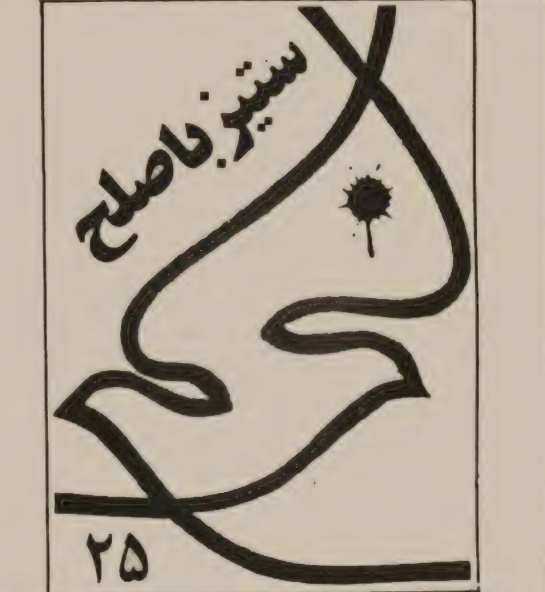 ستیز با صلح
۲۵